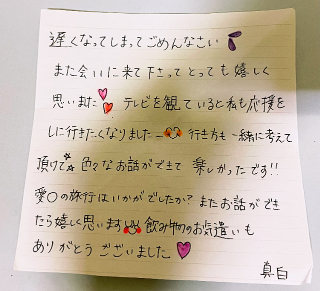 遅くなってしまってごめんなさい
また会いに来て下さってとっても嬉しく
思いました テレビを観ていると私も応援を
しに行きたくなりました 行き方も一緒に考えて
頂けて 色々なお話ができて 楽しかったです!!
愛〇の旅行はいかがでしたか? またお話ができ
たら嬉しく思います 飲み物のお気遣いも
ありがとうございました
真白